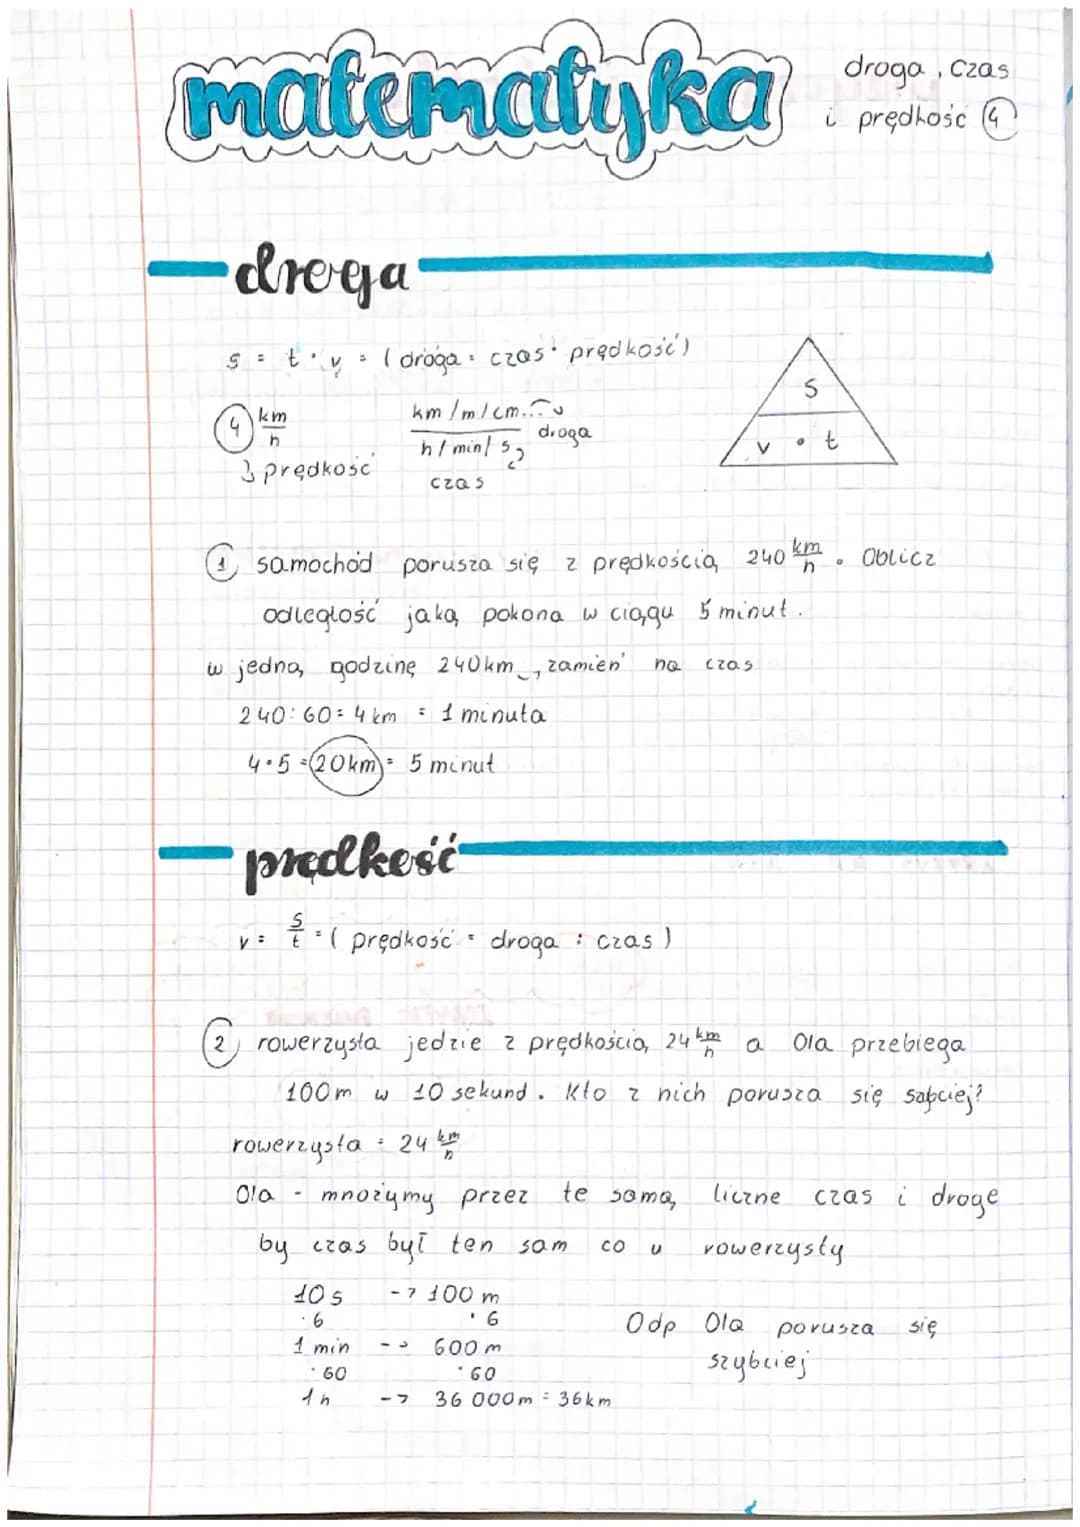 matematyka
droga, czas
i prędkość 4
droga
s = t · v = (droga = czas · prędkość)
4 km/h
prędkość
km/m/cm...
droga
h/min/s
czas
S
v · t
1 samochód porusza się z prędkością 240 km/h. Oblicz
odległość jaką pokona w ciągu 5 minut.
w jedną godzinę 240km, zamień na czas
240:60 = 4 km = 1 minuta
4·5 = 20km = 5 minut
prędkość
v = s/t = (prędkość = droga : czas)
2 rowerzysta jedzie z prędkością 24 km/h a Ola przebiega
100m w 10 sekund. Kto z nich porusza się
rowerzysta = 24 km/h
Ola - mnożymy przez te samą liczne czas i droge
by czas był ten sam co u rowerzysty
10s -> 100 m
·6 ·6
1 min -> 600 m
·60 ·60
1h -> 36 000m = 36km
Odp Ola porusza się
szybciej